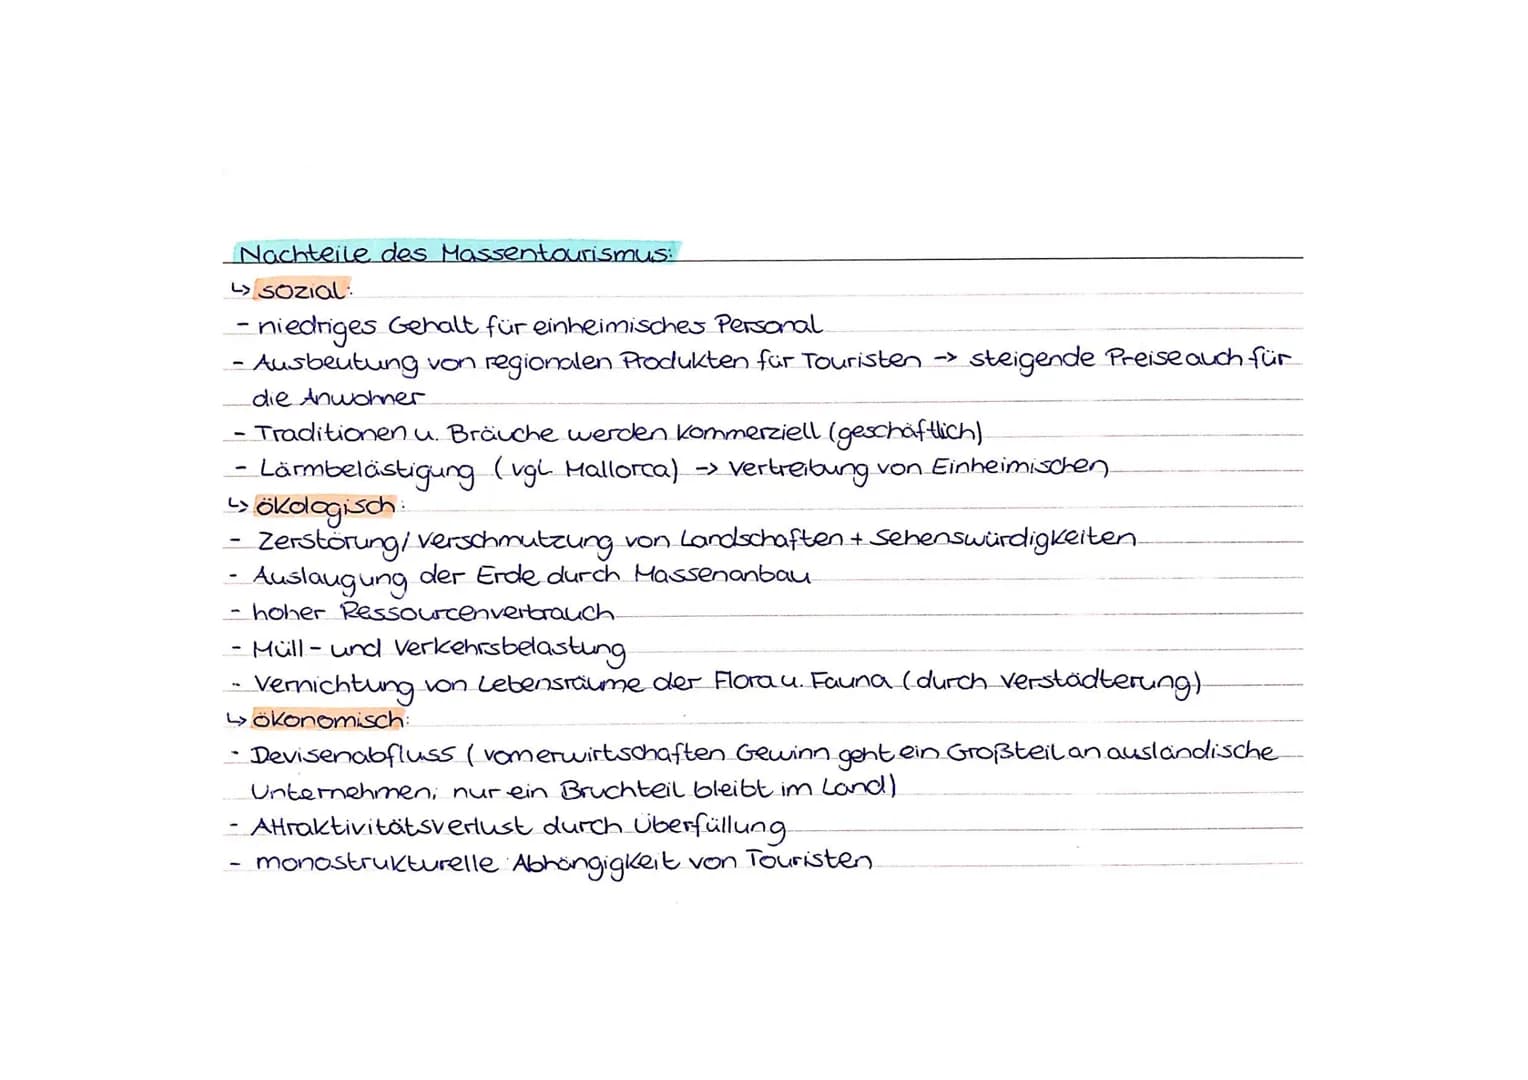 Nachteile des Massentourismus:
↳ sozial:
- niedriges Gehalt für einheimisches Personal
- Ausbeutung von regionalen Produkten für Touristen -> steigende Preise auch für
die Anwohner
- Traditionen u. Bräuche werden kommerziell (geschäftlich)
- Lärmbelästigung (vgl. Mallorca) -> Vertreibung von Einheimischen
↳ ökologisch:
- Zerstörung/Verschmutzung von Landschaften + Sehenswürdigkeiten
- Auslaugung der Erde durch Massenanbau
- hoher Ressourcenverbrauch
- Müll- und Verkehrsbelastung
- Vernichtung von Lebensräume der Flora u. Fauna (durch Verstädterung)
↳ ökonomisch:
- Devisenabfluss (vom erwirtschaften Gewinn geht ein Großteil an ausländische
Unternehmen; nur ein Bruchteil bleibt im Land)
- Attraktivitätsverlust durch Überfüllung
- monostrukturelle Abhängigkeit von Touristen